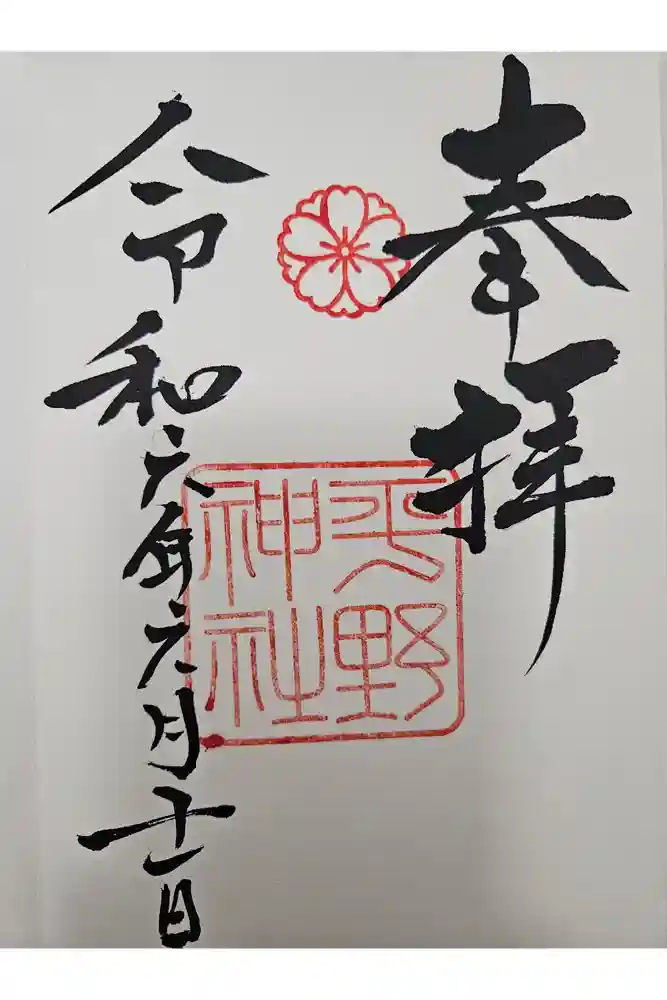 奉拝
平野
神社
令和六年元月十一日